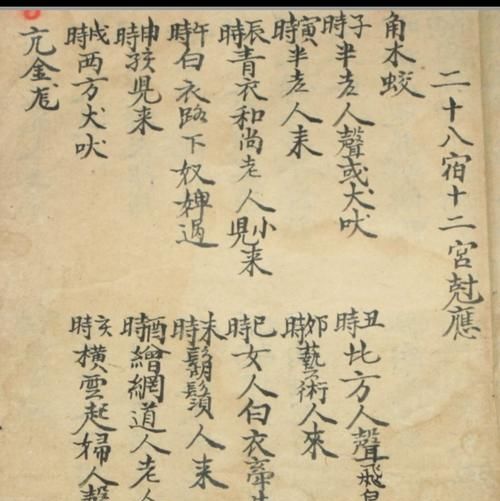 二十八宿十二宮尅應
角木蛟
子時半老人聲或犬吠
丑時北方人聲飛
寅時半老人来
卯時藝術人來
辰時青衣和尚老人小兒来
巳時女人白衣牽
午時白衣路下奴婢過
未時鬍鬚人来
申時孩児来
酉時繒網道人老人
戌時西方犬吠
亥時橫雲起婦人聲
亢金龙